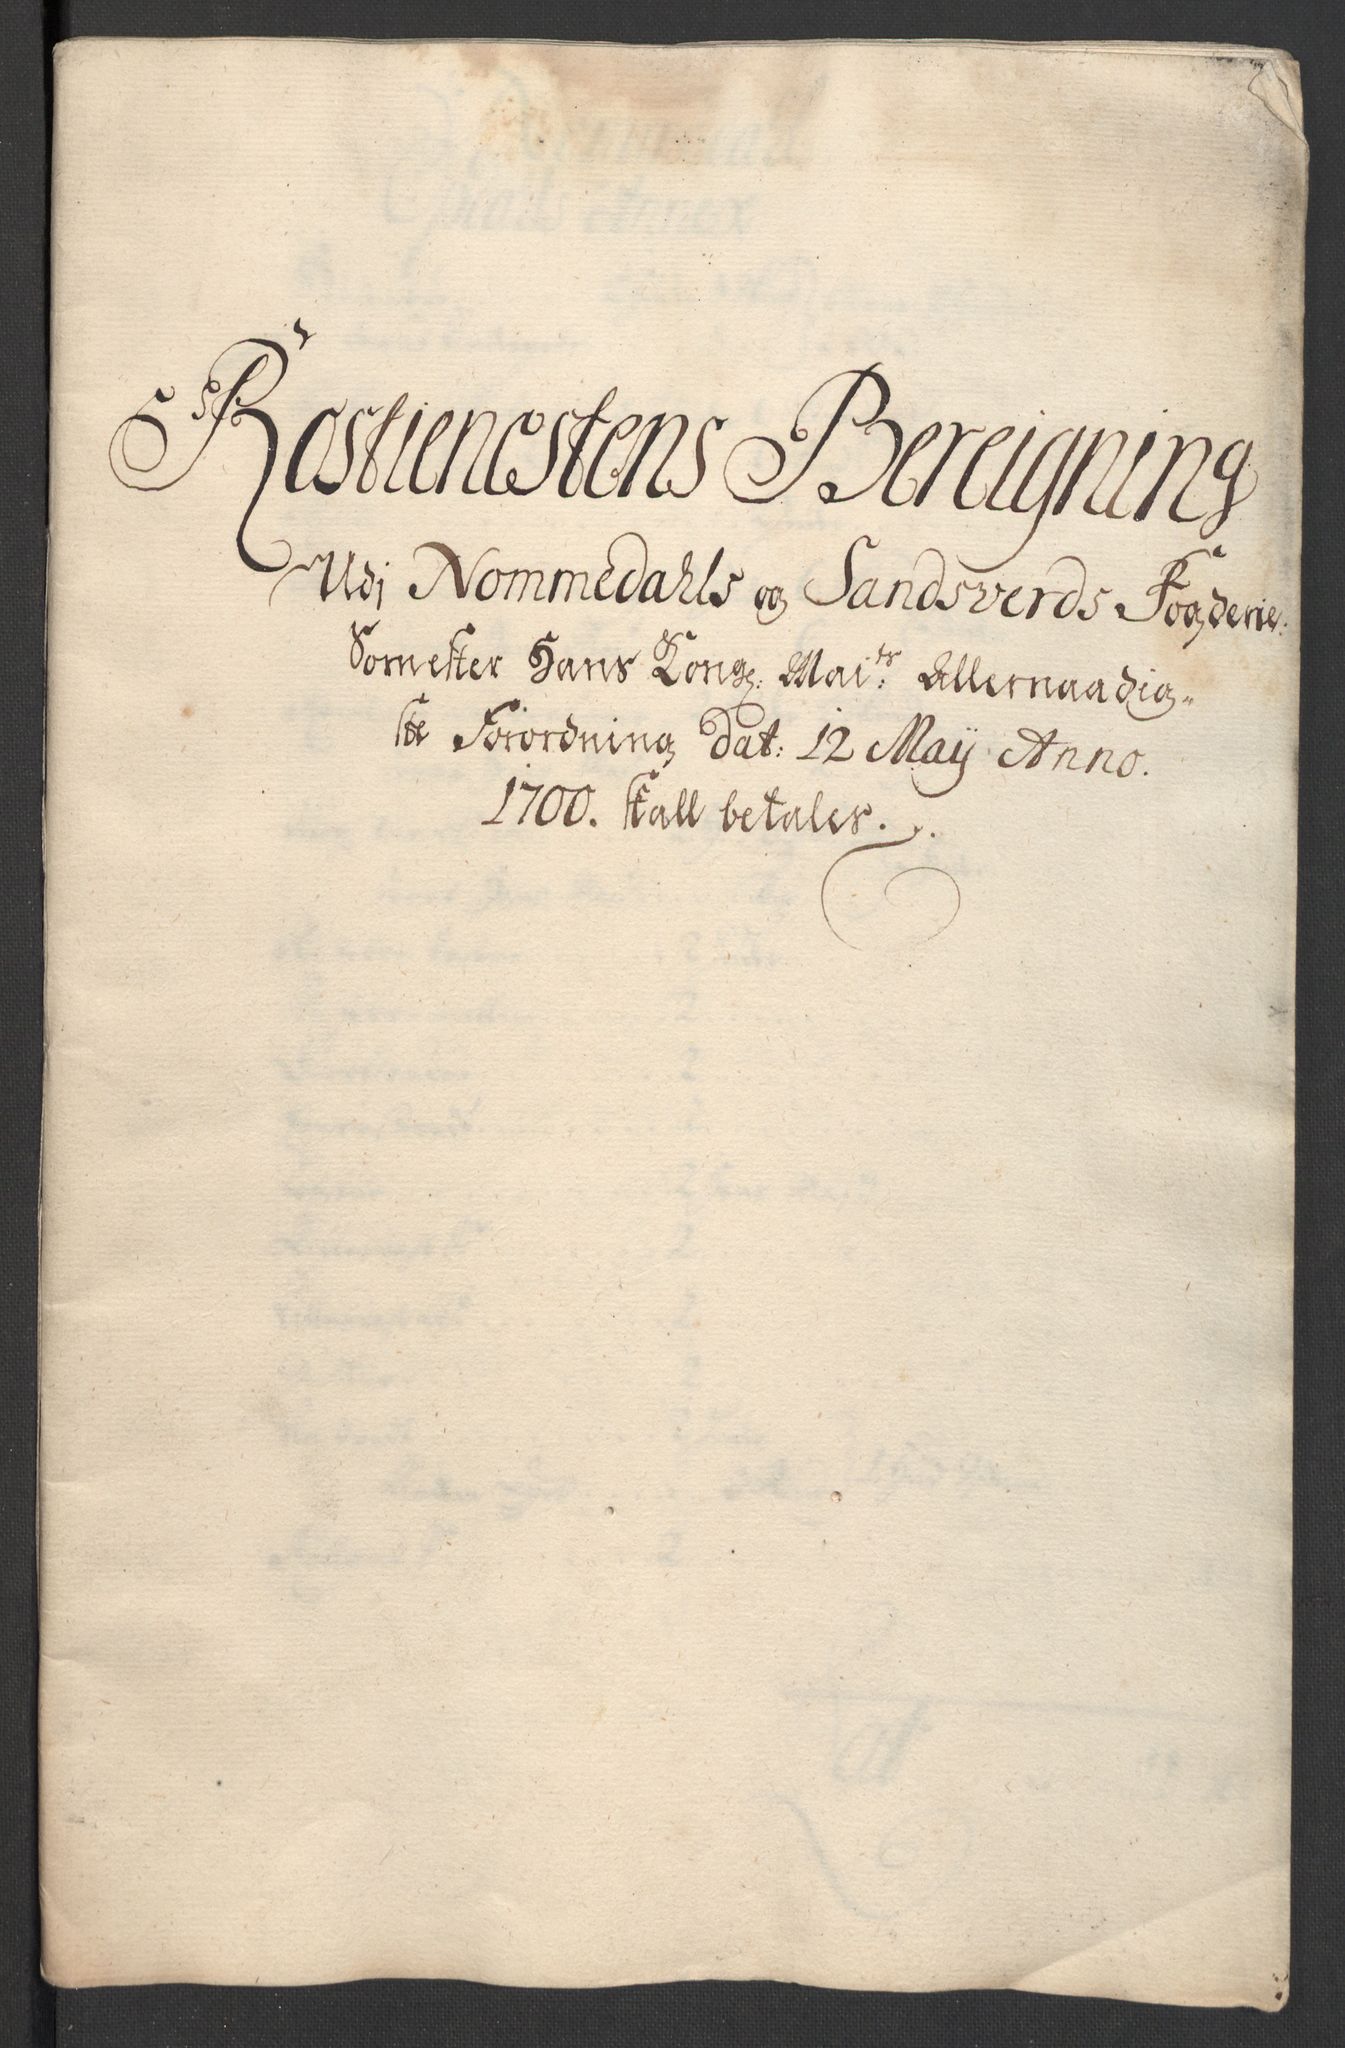 Rostienestens Bereigning
Udj Nommedahls og Sandsverds Fogderie:
Somefter Hans Kong: Mai:ts Allernaadig-
ste Forordning dat: 12 Maij Anno.
1700. skall betales.